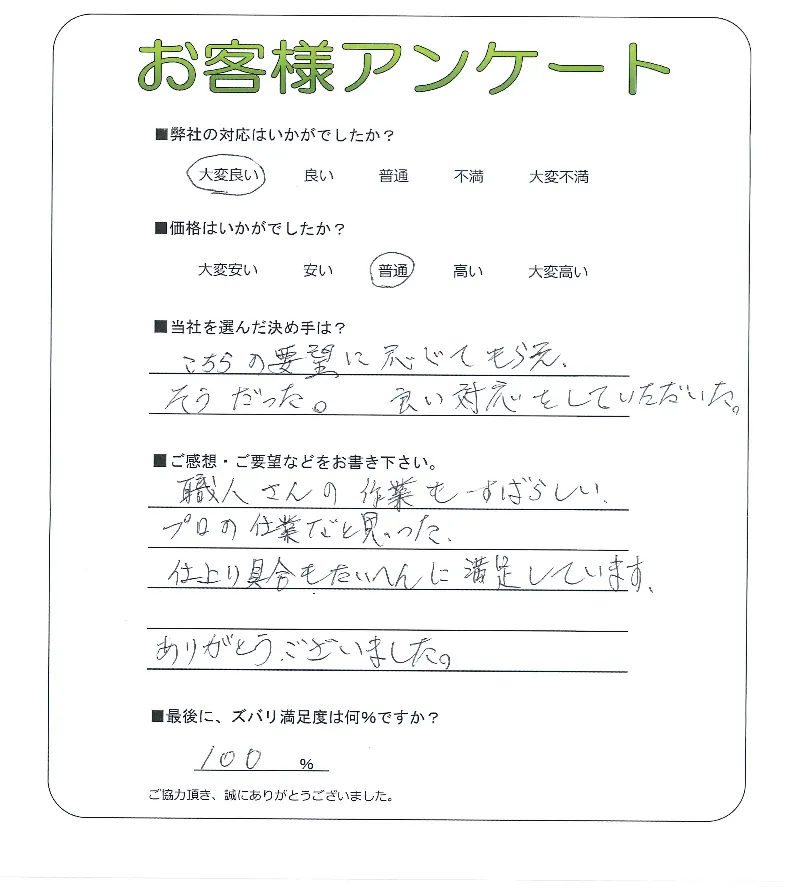 お客様アンケート
■弊社の対応はいかがでしたか？
大変良い 良い 普通 不満 大変不満
■価格はいかがでしたか？
大変安い 安い 普通 高い 大変高い
■当社を選んだ決め手は？
こちらの要望に応じてもらえ、
そうだった。 良い対応をしていただいた。
■ご感想・ご要望などをお書き下さい。
職人さんの作業もすばらしい、
プロの仕業だと思った、
仕上り具合もたいへんに満足しています、
ありがとうございました。
■最後に、ズバリ満足度は何%ですか？
100 %
ご協力頂き、誠にありがとうございました。